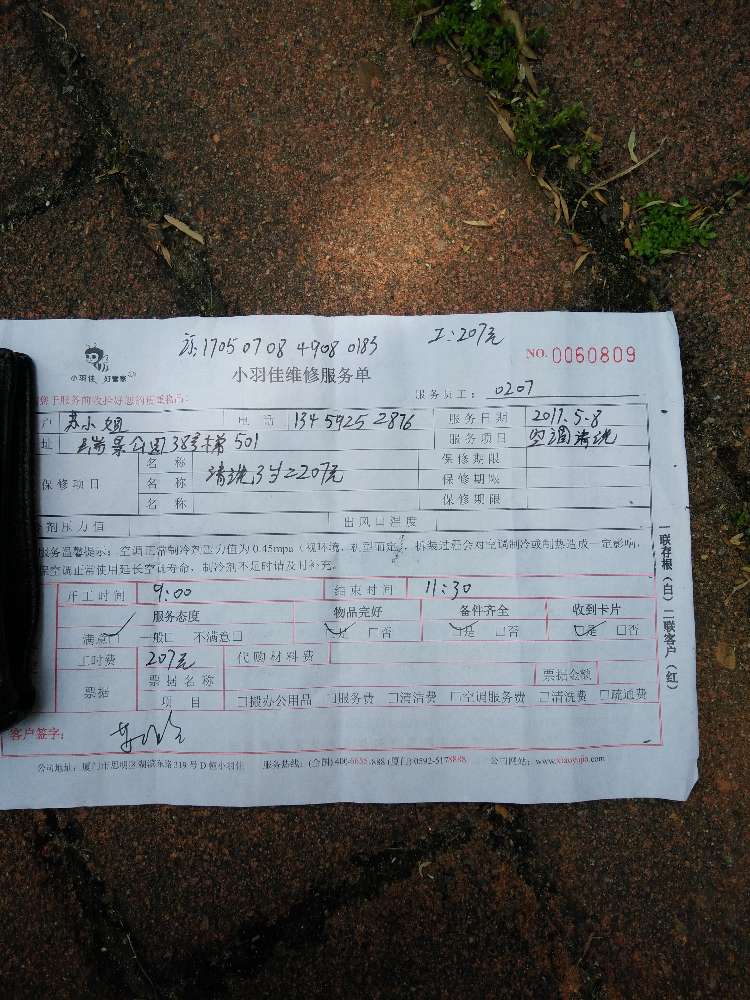 1705 07 08 4908 0183
工:207元
NO.0060809
小羽佳 好管家
小羽佳维修服务单
服务员工: 0207
您于服务前收拾好您的贵重物品:
户 苏小姐 电 话 134 5925 2876 服务日期 2017.5.8
址 瑞景公园38号楼501 服务项目 空调清洗
保修项目
名 称 保修期限
名 称 清洗3台=207元 保修期限
名 称 保修期限
剂压力值 出风口温度
服务温馨提示:空调正常制冷剂压力值为0.45mpa(视环境、机型而定),拆装过程会对空调制冷或制热造成一定影响,
保空调正常使用延长空调寿命,制冷剂不足时请及时补充。
开工时间 9:00 结束时间 11:30
服务态度 物品完好 备件齐全 收到卡片
满意□ 一般□ 不满意□ □是 □否 □是 □否 □是 □否
工时费 207元 代购材料费
票据 票据名称 票据金额
项 目 □搬办公用品 □服务费 □清洁费 □空调服务费 □清洗费 □疏通费
客户签字:
公司地址:厦门市思明区湖滨东路319号D幢小羽佳 服务热线:(全国)400-6655-888 (厦门)0592-5178888 公司网站:www.xiaoyujia.com
一联存根(白)二联客户(红)